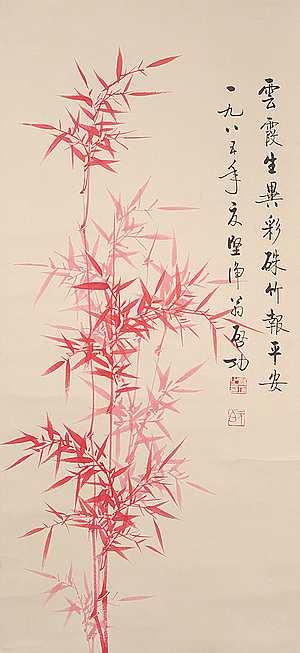 雲霞生異彩硃竹報平安
一九八五年夏堅淨翁啟功